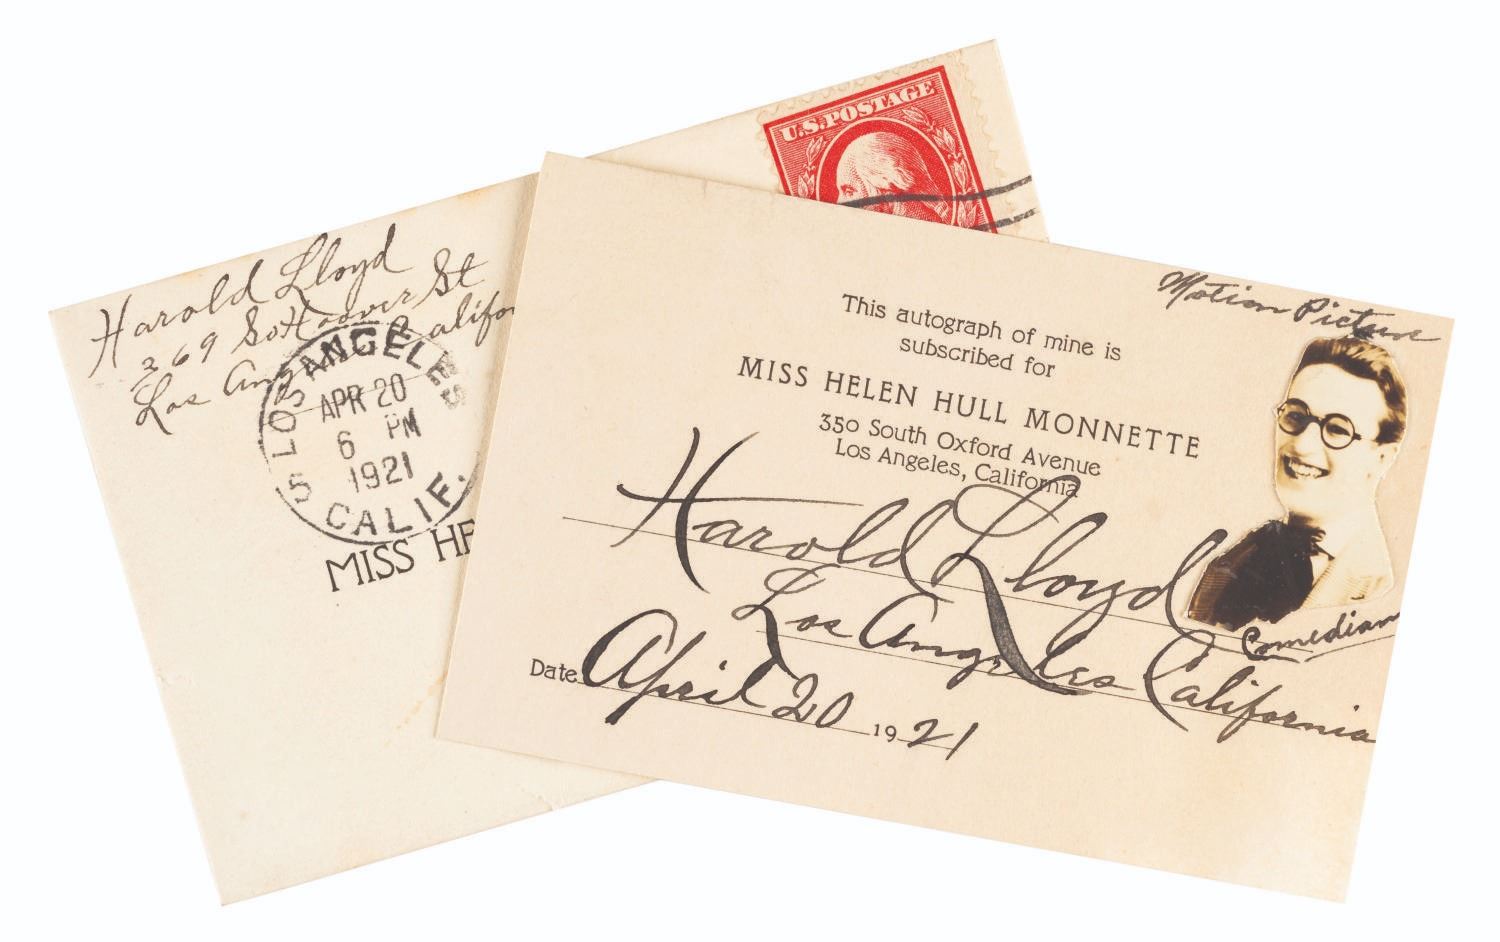 Harold Lloyd
369 So Hoover St
Los Angeles Califor
5 LOS ANGELES
APR 20
6 PM
1921
CALIF.
MISS HE
U.S. POSTAGE
Motion Picture
This autograph of mine is
subscribed for
MISS HELEN HULL MONNETTE
350 South Oxford Avenue
Los Angeles, California
Harold Lloyd
Comedian
Los Angeles California
Date April 20 1921